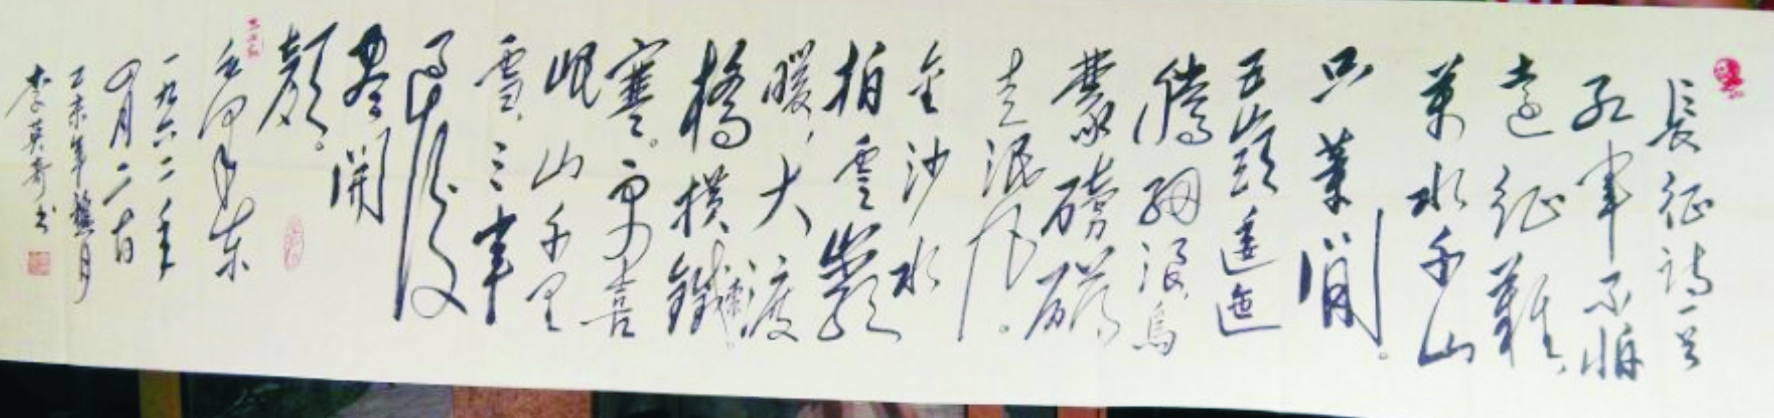 長征詩一首
紅軍不怕
遠征難,
萬水千山
只等閒。
五嶺逶迤
騰細浪,烏
蒙磅礴
走泥丸。
金沙水
拍雲巖
暖,大渡
橋橫鐵索
寒。更喜
岷山千里
雪,三軍
過後
盡開
顏。
毛澤東
一九六二年
四月二十日
乙未年臘月
李英奇書